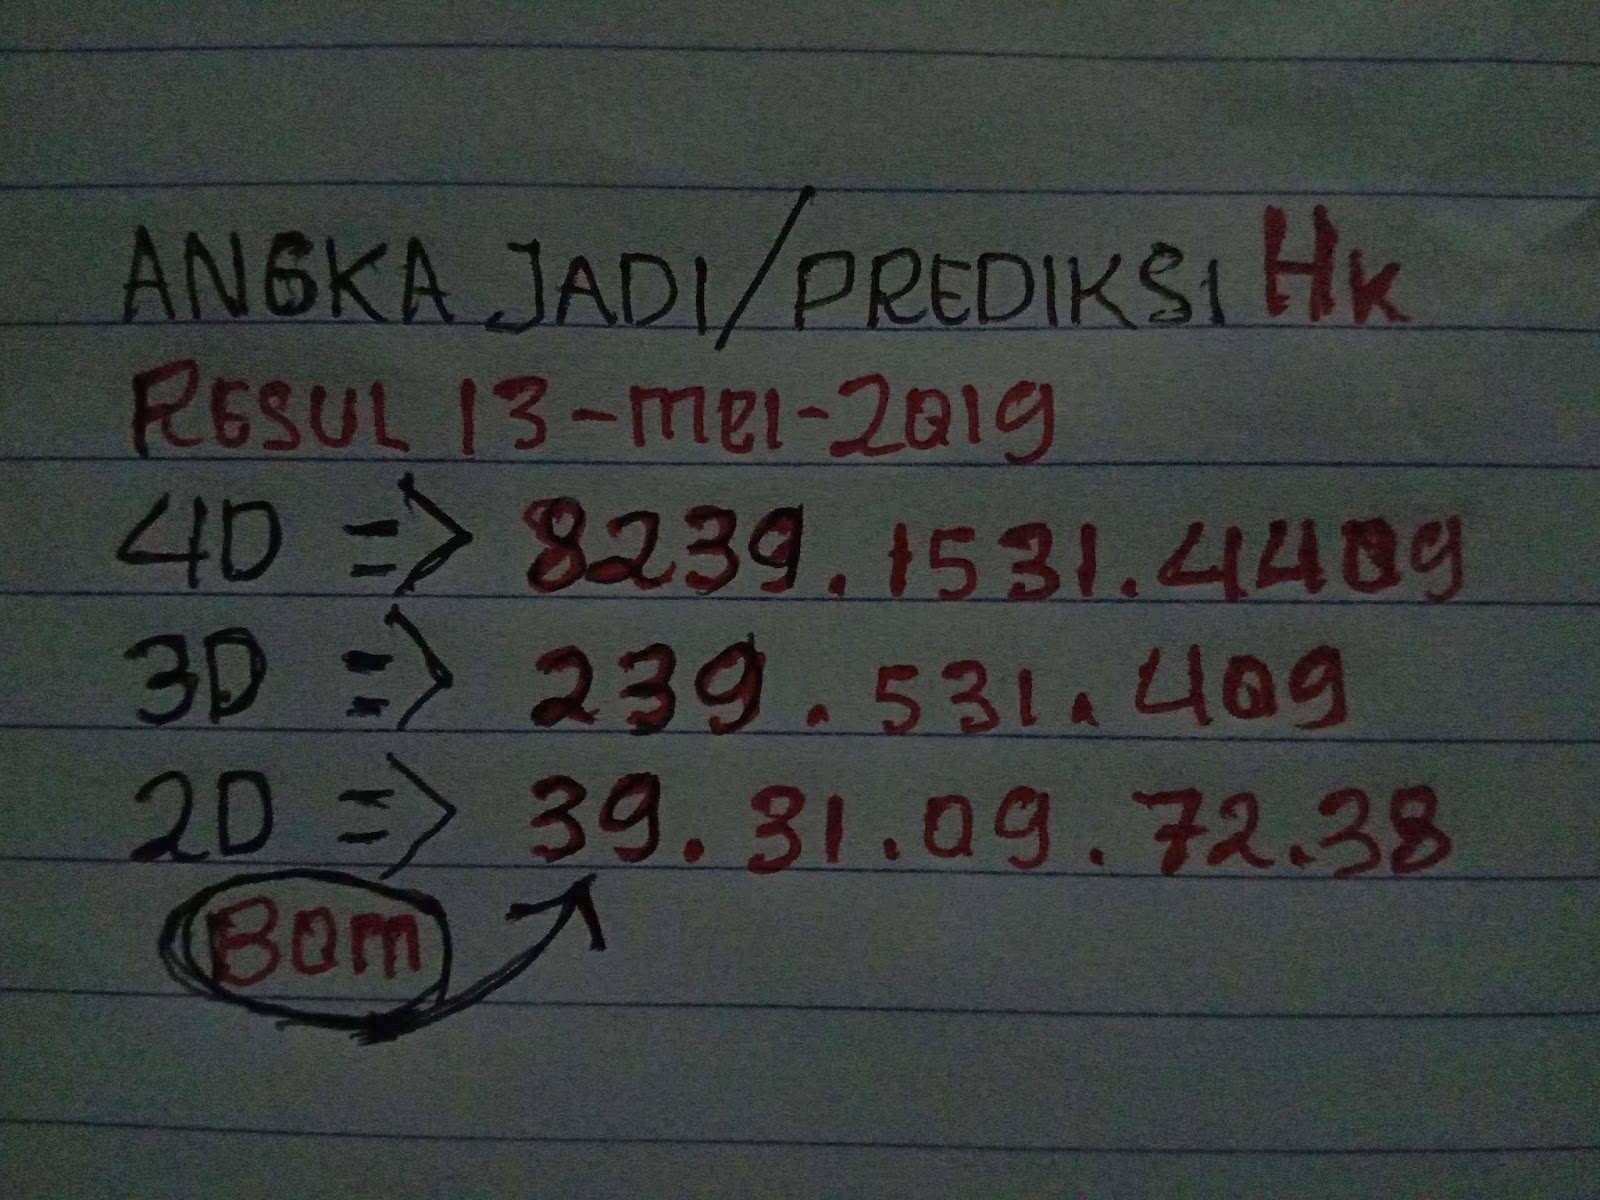 ANGKA JADI/PREDIKSI HK
RESUL 13-mei-2019
4D => 8239.1531.4409
3D => 239.531.409
2D => 39.31.09.72.38
BOM